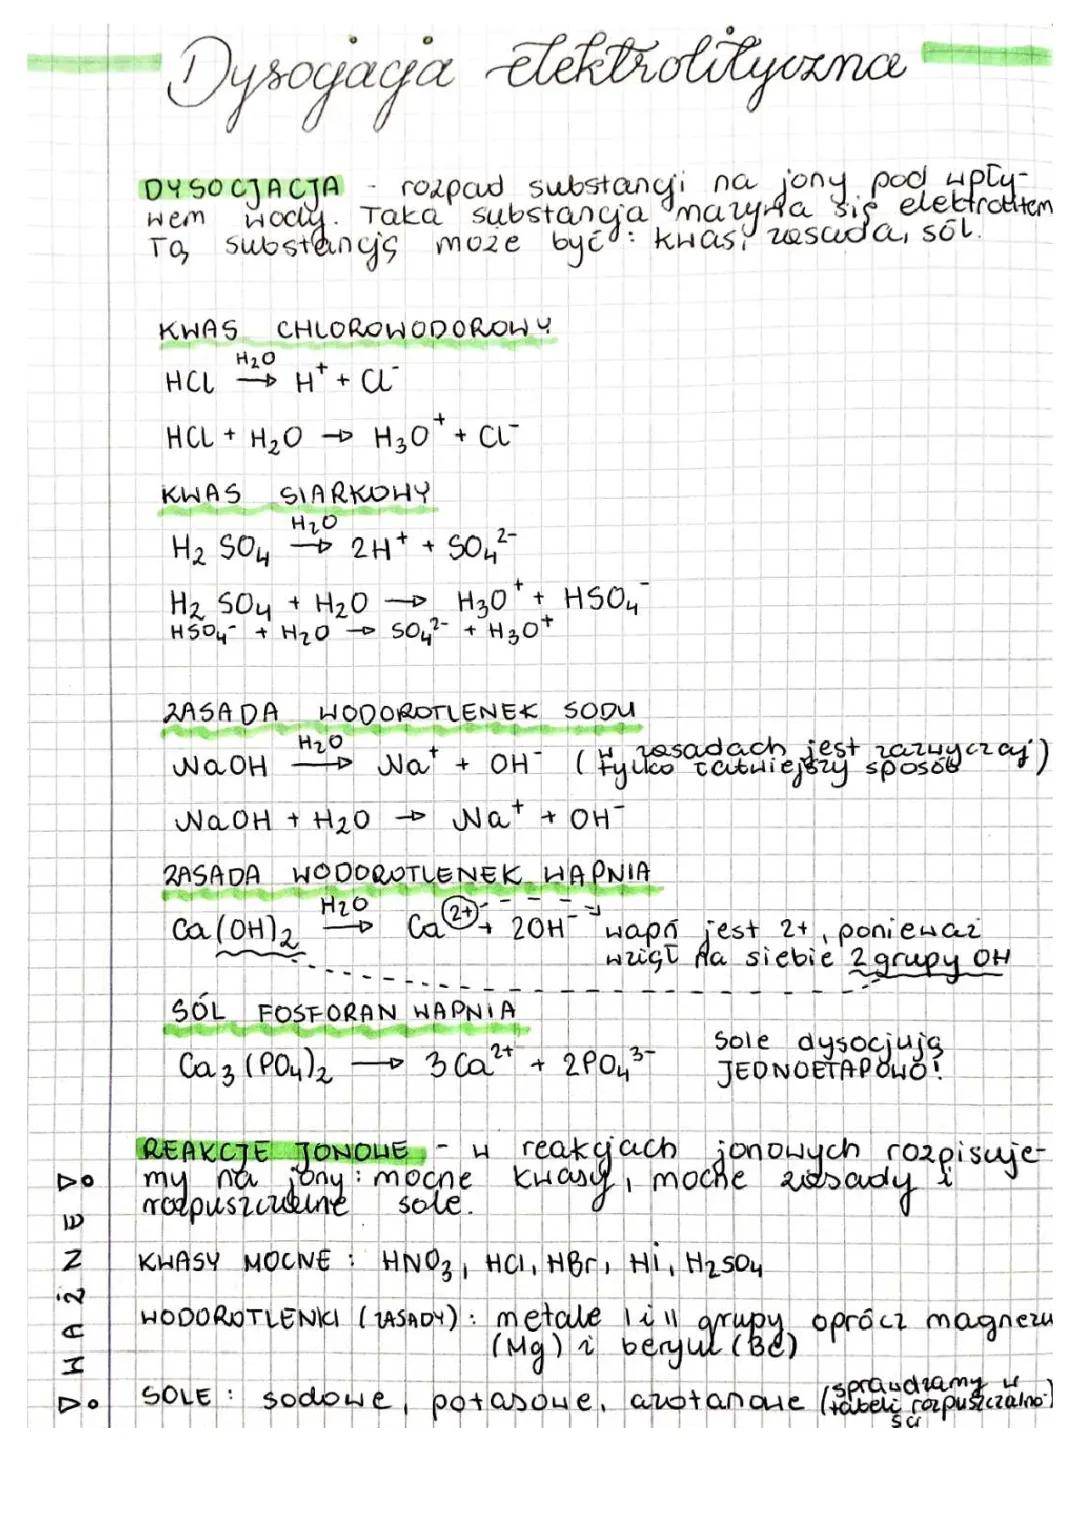 Dysocjacja elektrolityczna
DYSOCJACJA - rozpad substancji na jony pod wpły-
wem wody. Taka substancja nazywa się elektrolitem
Tą substancją może być: kwas, zasada, sól.
KWAS CHLOROWODOROWY
H₂O
HCl → H⁺ + Cl⁻
HCl + H₂O → H₃O⁺ + Cl⁻
KWAS SIARKOWY
H₂O
H₂SO₄ → 2H⁺ + SO₄²⁻
H₂SO₄ + H₂O → H₃O⁺ + HSO₄⁻
HSO₄⁻ + H₂O → SO₄²⁻ + H₃O⁺
ZASADA WODOROTLENEK SODU
H₂O
NaOH → Na⁺ + OH⁻ (w zasadach jest zazwyczaj
tylko łatwiejszy sposób)
NaOH + H₂O → Na⁺ + OH⁻
ZASADA WODOROTLENEK WAPNIA
H₂O
Ca(OH)₂ → Ca²⁺ + 2OH⁻ wapń jest 2+, ponieważ
wziął na siebie 2 grupy OH
SÓL FOSFORAN WAPNIA
Ca₃(PO₄)₂ → 3Ca²⁺ + 2PO₄³⁻
Sole dysocjują
JEDNOETAPOWO!
REAKCJE JONOWE - w reakcjach jonowych rozpisuje-
my na jony: mocne kwasy, mocne zasady i
rozpuszczalne sole.
KWASY MOCNE: HNO₃, HCl, HBr, Hi, H₂SO₄
WODOROTLENKI (ZASADY): metale I i II grupy oprócz magnezu
(Mg) i berylu (Be)
SOLE: sodowe, potasowe, azotanowe (sprawdzamy w
tabeli rozpuszczalno-
ści)
WAŻNE